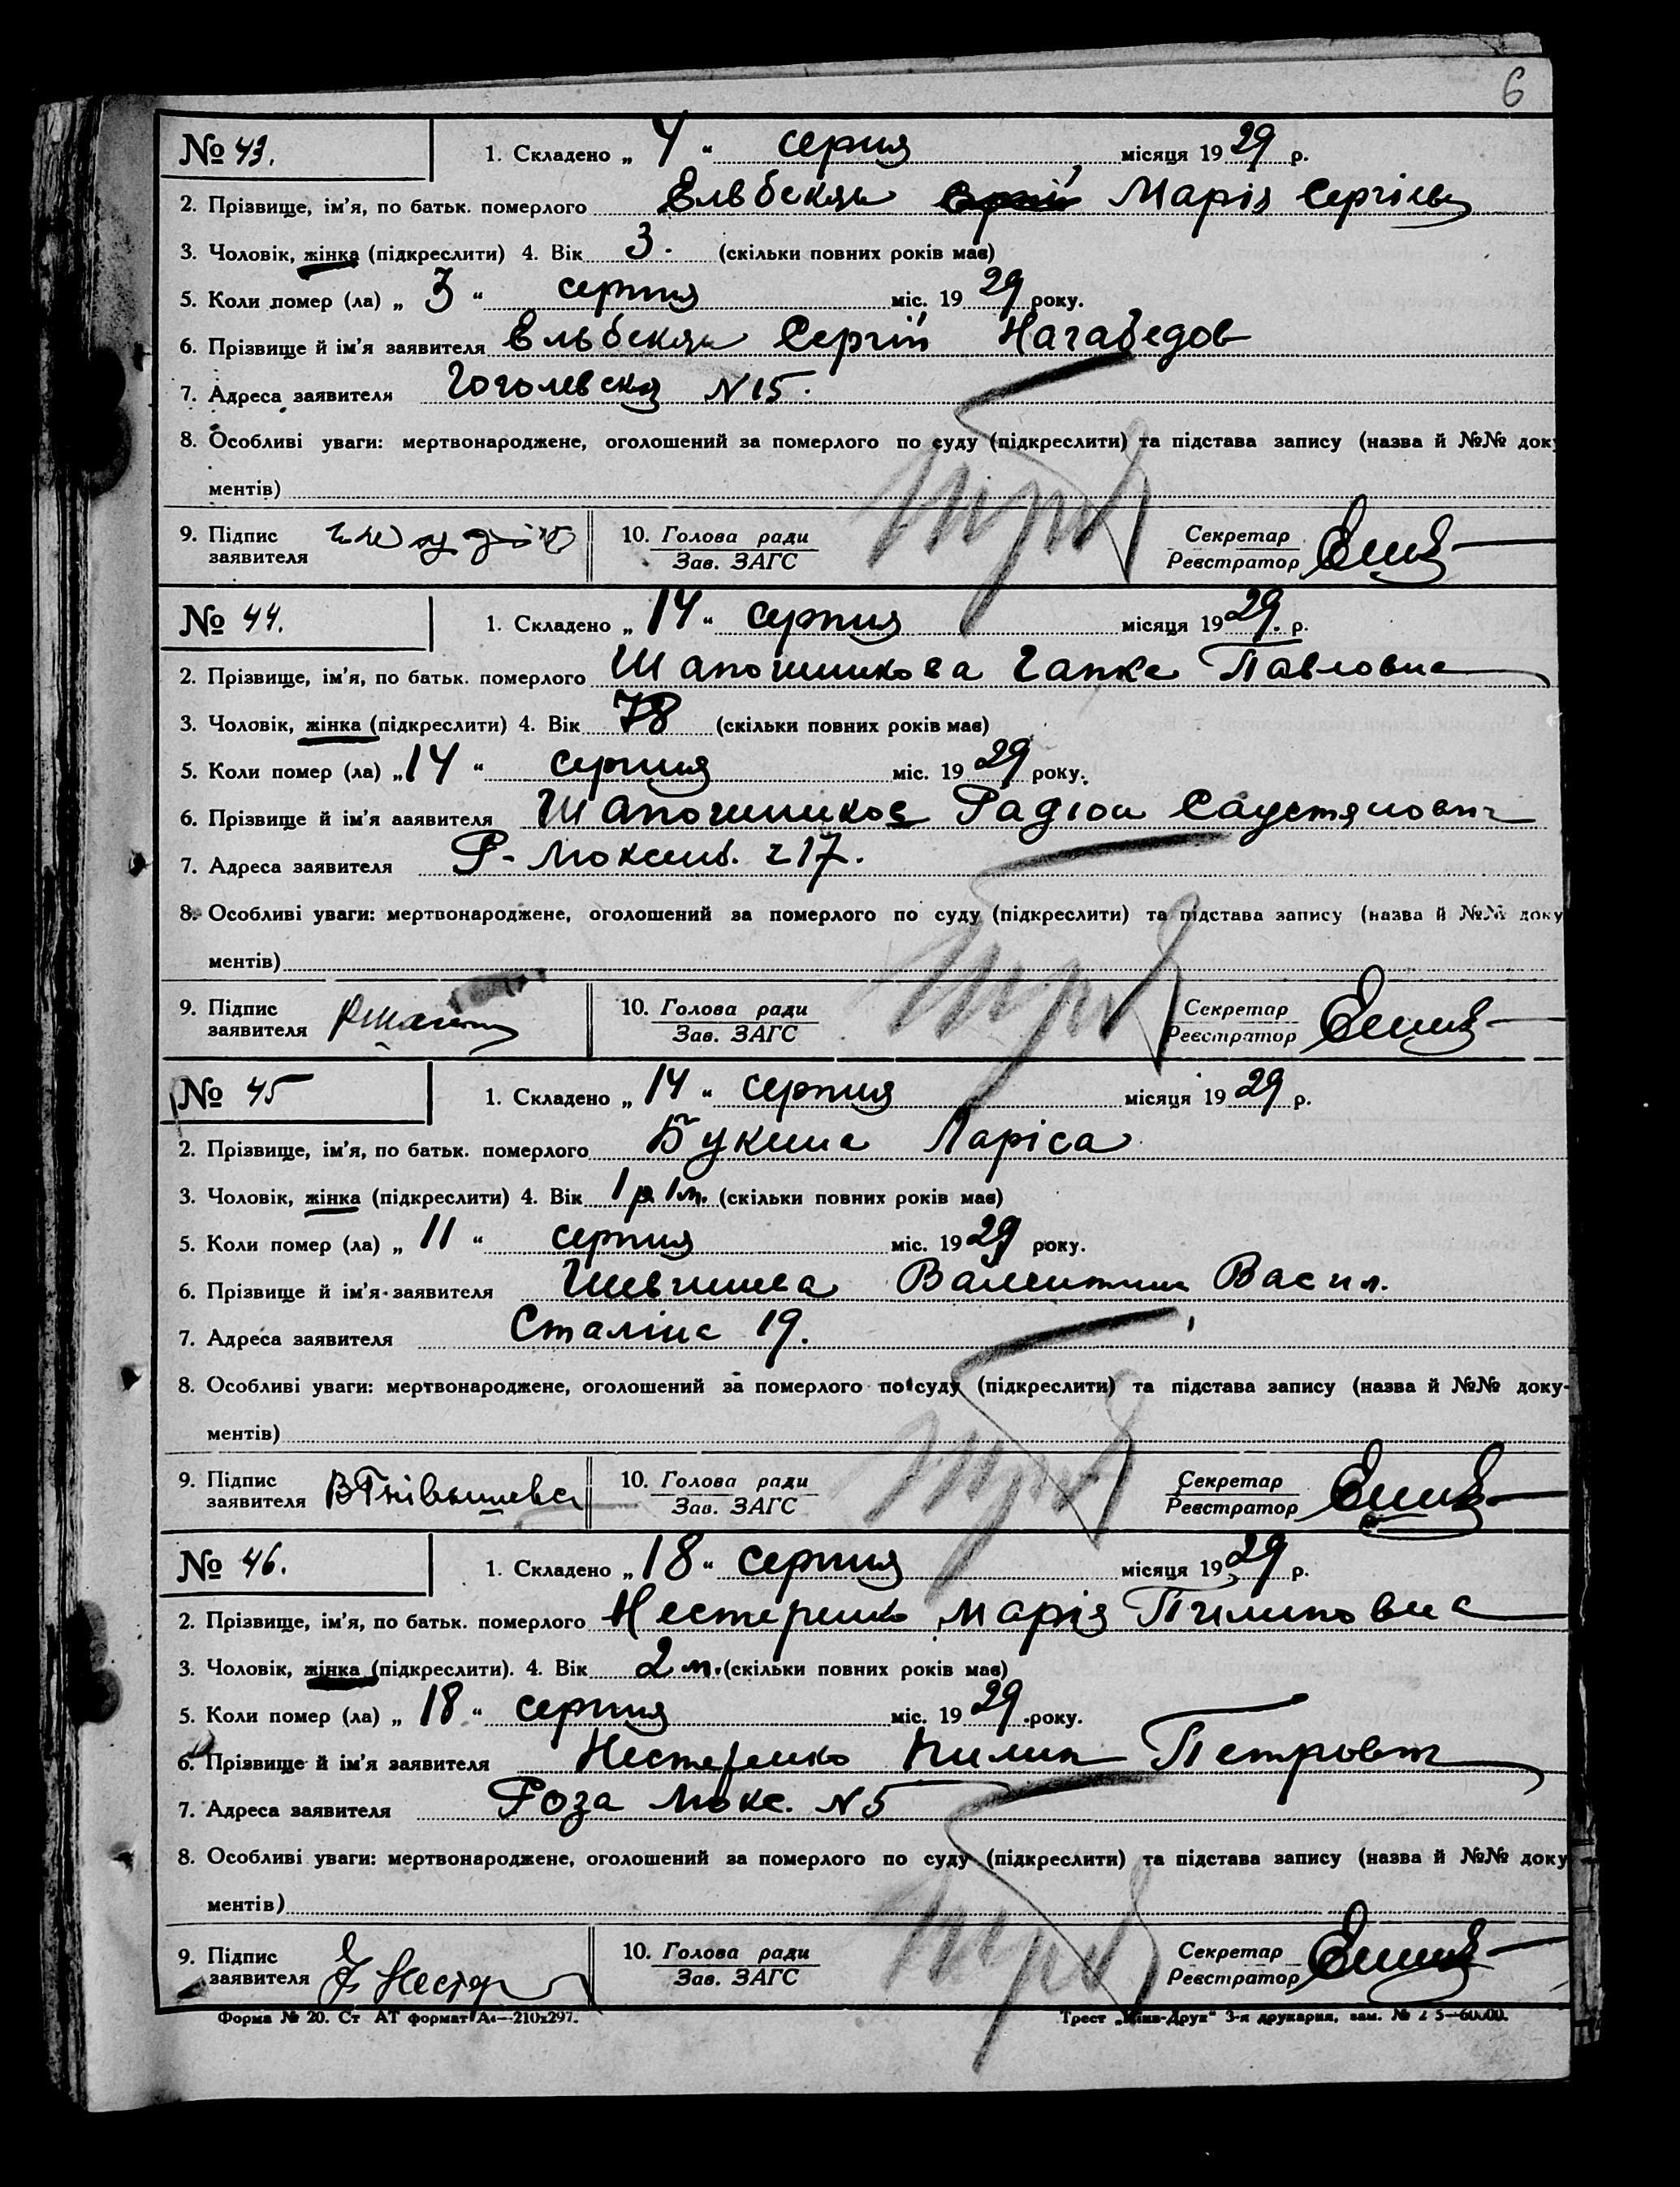 6
№ 43. 1. Складено „ 4 “ серпня місяця 1929 р.
2. Прізвище, ім'я, по батьк. померлого Ельбекян Марія Сергіевн
3. Чоловік, жінка (підкреслити) 4. Вік 3. (скільки повних років має)
5. Коли помер (ла) „ 3 “ серпня міс. 1929 року.
6. Прізвище й ім'я заявителя Ельбекян Сергій Нагабедов
7. Адреса заявителя Гоголевская N 15.
8. Особливі уваги: мертвонароджене, оголошений за померлого по суду (підкреслити) та підстава запису (назва й №№ доку
ментів)
9. Підпис заявителя 10. Голова ради Зав. ЗАГС Секретар Реєстратор
№ 44. 1. Складено „ 14 “ серпня місяця 1929. р.
2. Прізвище, ім'я, по батьк. померлого Шапошникова Гапка Павловна
3. Чоловік, жінка (підкреслити) 4. Вік 78 (скільки повних років має)
5. Коли помер (ла) „ 14 “ серпня міс. 1929 року.
6. Прізвище й ім'я заявителя Шапошников Радіон
7. Адреса заявителя Р-Люксенб. 217.
8. Особливі уваги: мертвонароджене, оголошений за померлого по суду (підкреслити) та підстава запису (назва й №№ доку
ментів)
9. Підпис заявителя 10. Голова ради Зав. ЗАГС Секретар Реєстратор
№ 45 1. Складено „ 14 “ серпня місяця 1929 р.
2. Прізвище, ім'я, по батьк. померлого Букина Ларіса
3. Чоловік, жінка (підкреслити) 4. Вік 1 р. 1 м. (скільки повних років має)
5. Коли помер (ла) „ 11 “ серпня міс. 1929 року.
6. Прізвище й ім'я заявителя Валентина Васил.
7. Адреса заявителя Сталіна 19.
8. Особливі уваги: мертвонароджене, оголошений за померлого по суду (підкреслити) та підстава запису (назва й №№ доку-
ментів)
9. Підпис заявителя 10. Голова ради Зав. ЗАГС Секретар Реєстратор
№ 46. 1. Складено „ 18 “ серпня місяця 1929 р.
2. Прізвище, ім'я, по батьк. померлого Нестеренко Марія Пилиповна
3. Чоловік, жінка (підкреслити). 4. Вік 2 м. (скільки повних років має)
5. Коли помер (ла) „ 18 “ серпня міс. 1929 року.
6. Прізвище й ім'я заявителя Нестеренко Пилип Петрович
7. Адреса заявителя Роза Люкс. N 5
8. Особливі уваги: мертвонароджене, оголошений за померлого по суду (підкреслити) та підстава запису (назва й №№ доку
ментів)
9. Підпис заявителя Нестер 10. Голова ради Зав. ЗАГС Секретар Реєстратор
Форма № 20. Ст АТ формат А4—210x297. Трест „Київ-Друк“ 3-я друкарня, зам. №